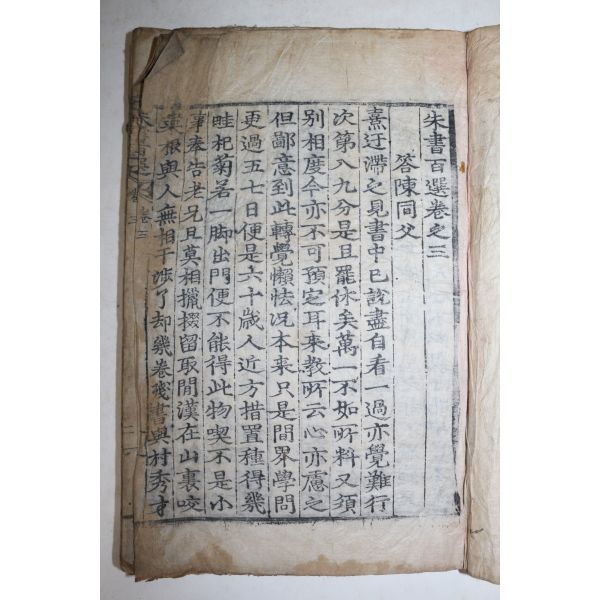 朱書百選卷之三
答陳同父
熹迂滯之見書中已說盡自看一過亦覺難行
次第八九分是且罷休矣萬一不如所料又須
別相度今亦不可預定耳來敎所云心亦慮之
但鄙意到此轉覺懶怯况本來只是間界學問
更過五七日便是六十歲人近方措置種得幾
畦杞菊若一脚出門便不能得此物喫不是小
事奉告老兄且莫相攛掇留取閒漢在山裏咬
菜根與人無相干涉了却幾卷殘書與村秀才
朱書百選 卷三